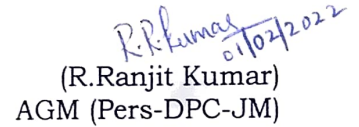 R.R.Kumar
01/02/2022
(R.Ranjit Kumar)
AGM (Pers-DPC-JM)